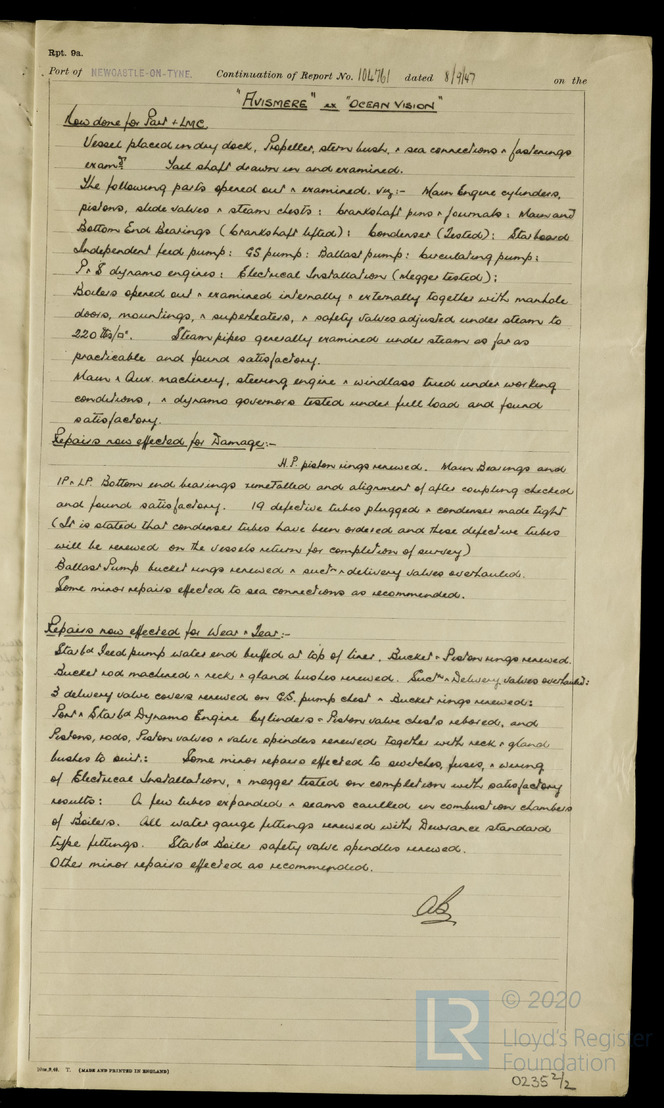 Rpt. 9a.
Port of NEWCASTLE-ON-TYNE. Continuation of Report No. 104761 dated 8/9/47 on the
"AVISMERE" ex "OCEAN VISION"
Now done for Part + LMC.
Vessel placed in dry dock, Propeller, stern bush, & sea connections & fastenings
exam^d. Tail shaft drawn in and examined.
The following parts opened out & examined. viz:- Main Engine cylinders,
pistons, slide valves & steam chests: Crankshaft pins & journals: Main and
Bottom End Bearings (Crankshaft lifted): Condenser (Tested): Starboard
Independent feed pump: GS pump: Ballast pump: Circulating pump:
P & S dynamo engines: Electrical Installation (Megger tested);
Boilers opened out & examined internally & externally together with manhole
doors, mountings, & superheaters, & safety valves adjusted under steam to
220 lbs/□". Steam pipes generally examined under steam as far as
practicable and found satisfactory.
Main & Aux. machinery, steering engine & windlass tried under working
conditions, & dynamo governors tested under full load and found
satisfactory.
Repairs now effected for Damage:-
H.P. piston rings renewed. Main Bearings and
IP & LP. Bottom end bearings remetalled and alignment of after coupling checked
and found satisfactory. 19 defective tubes plugged & condenser made tight
(It is stated that condenser tubes have been ordered and these defective tubes
will be renewed on the vessels return for completion of survey)
Ballast Pump bucket rings renewed & suct^n & delivery valves overhauled.
Some minor repairs effected to sea connections as recommended.
Repairs now effected for Wear & Tear:-
Starb^d Feed pump water end buffed at top of liner. Bucket & Piston rings renewed.
Bucket rod machined & neck & gland bushes renewed. Suct^n & Delivery valves overhauled:
3 delivery valve covers renewed on G.S. pump chest & Bucket rings renewed:
Port & Starb^d Dynamo Engine Cylinders & Piston valve chests rebored, and
Pistons, rods, Piston valves & valve spindles renewed together with neck & gland
bushes to suit.: Some minor repairs effected to switches, fuses, & wiring
of Electrical Installation, & megger tested on completion with satisfactory
results: A few tubes expanded & seams caulked in combustion chambers
of Boilers. All water gauge fittings renewed with Dewrance standard
type fittings. Starb^d Boiler safety valve spindles renewed.
Other minor repairs effected as recommended.
© 2020
LR Lloyd's Register
Foundation
(MADE AND PRINTED IN ENGLAND)
0235 2/2